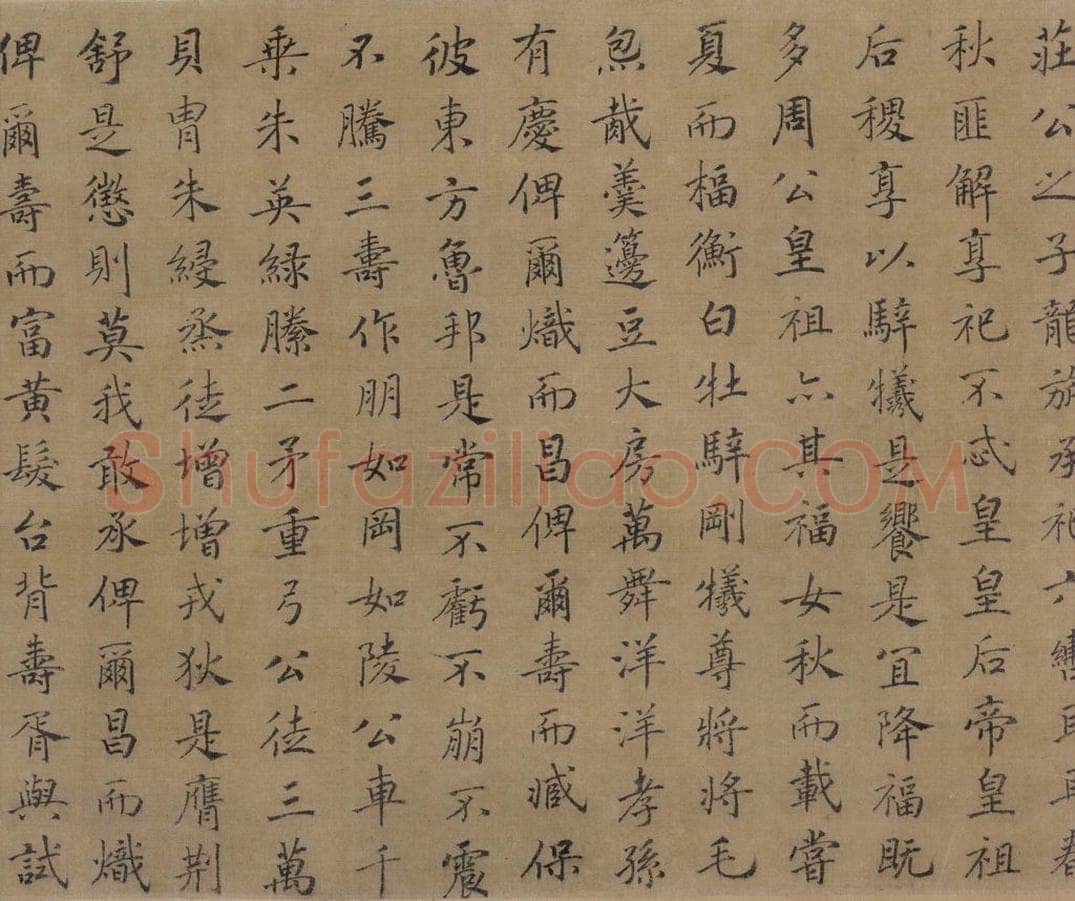 莊公之子龍旂承祀六轡耳耳春
秋匪解享祀不忒皇皇后帝皇祖
后稷享以騂犧是饗是宜降福既
多周公皇祖亦其福女秋而載嘗
夏而楅衡白牡騂剛犧尊將將毛
炰胾羹籩豆大房萬舞洋洋孝孫
有慶俾爾熾而昌俾爾壽而臧保
彼東方魯邦是常不虧不崩不震
不騰三壽作朋如岡如陵公車千
乗朱英綠縢二矛重弓公徒三萬
貝冑朱綅烝徒增增戎狄是膺荊
舒是懲則莫我敢承俾爾昌而熾
俾爾壽而富黃髮台背壽胥與試
Shufaziliao.COM